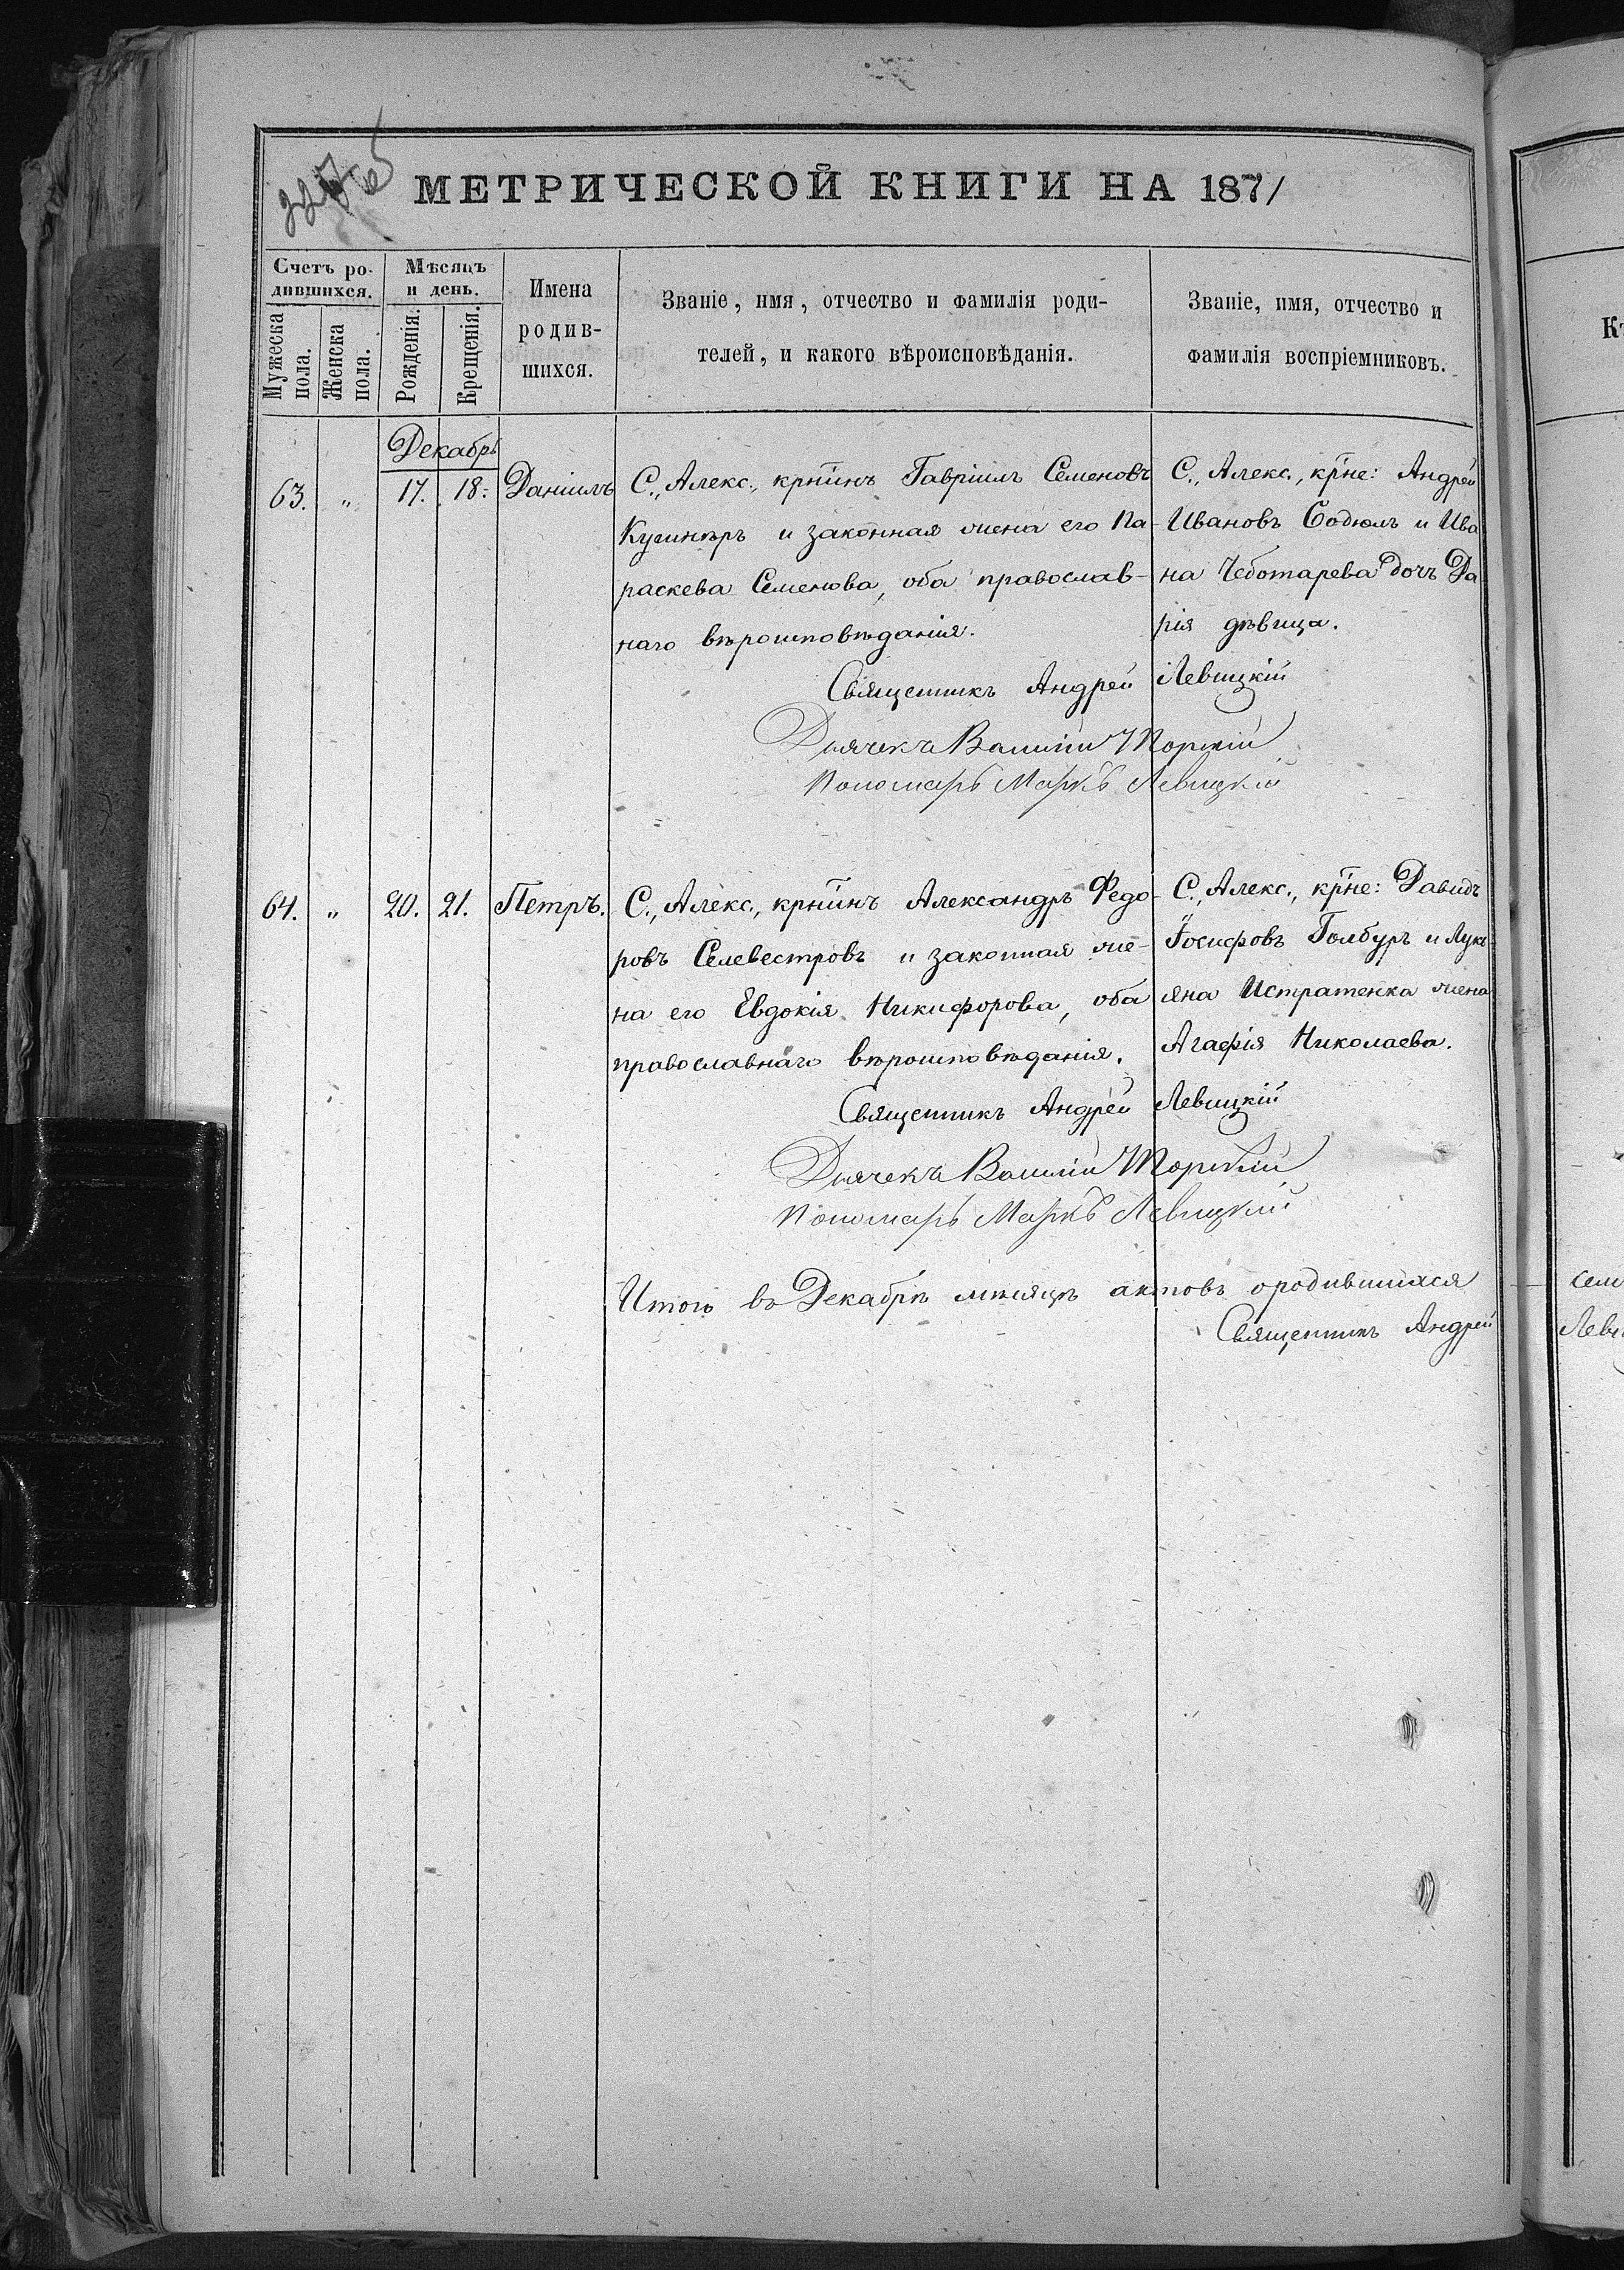 МЕТРИЧЕСКОЙ КНИГИ НА 1871
Счетъ ро-
дившихся.
Мѣсяцъ
и день.
Мужеска
пола.
Женска
пола.
Рожденія.
Крещенія.
Имена
родив-
шихся.
Званіе, имя, отчество и фамилія роди-
телей, и какого вѣроисповѣданія.
Званіе, имя, отчество и
фамилія воспріемниковъ.
Декабрь
63. " 17. 18. Даніилъ
С., Алекс., крнинъ Гавріилъ Семеновъ
и законная жена его Па-
раскева Семенова, оба православ-
наго вѣроисповѣданія.
С., Алекс., крне: Андрей
Ивановъ Бодюлъ и Ива
на Чеботарева дочь Да
рія дѣвица.
Священникъ Андрей Левицкій
Дьячекъ Василій
Пономарь Маркъ Левицкій
64. " 20. 21. Петръ.
С., Алекс., крнинъ Александръ Федо-
ровъ Селевестровъ и законная же-
на его Евдокія Никифорова, оба
православнаго вѣроисповѣданія.
С., Алекс., крне: Давидъ
Іосифовъ Голбуръ и Лукі-
яна Истратенка жена
Агафія Николаева.
Священникъ Андрей Левицкій
Дьячекъ Василій
Пономарь Маркъ Левицкій
Итого въ Декабрѣ мѣсяцѣ актовъ ородившихся
Священникъ Андрей